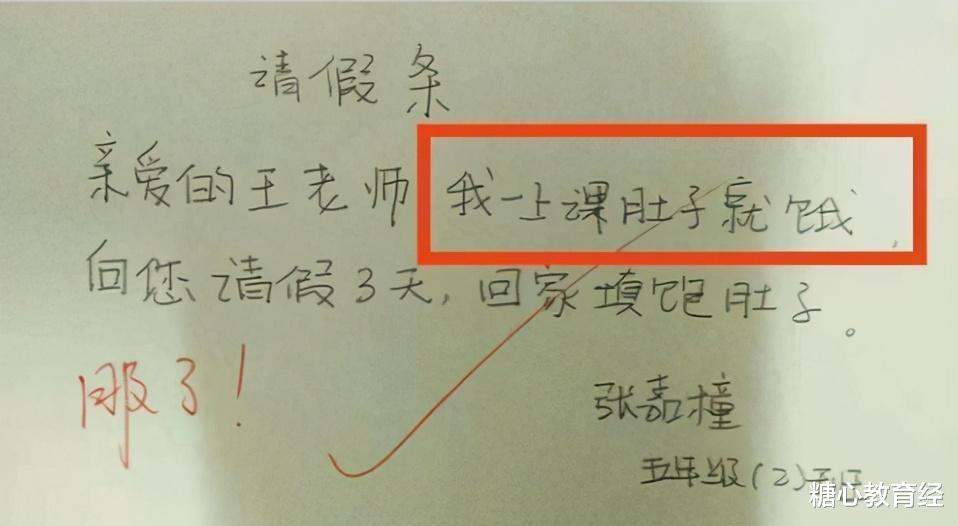 请假条
亲爱的王老师 我一上课肚子就饿,
向您请假3天,回家填饱肚子。
服了!
张嘉橦
五年级(2)班
糖心教育经